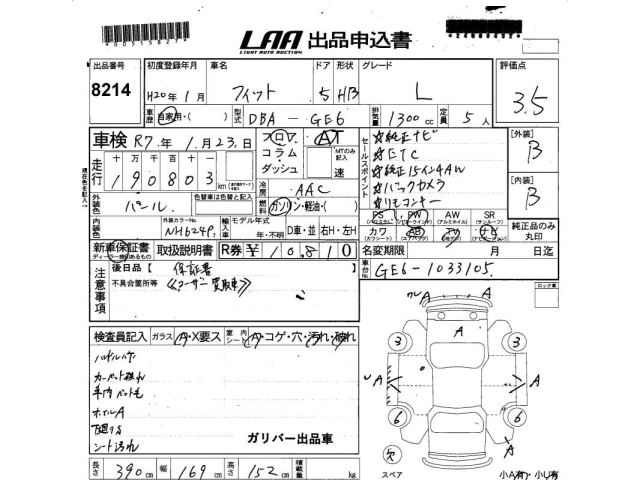 LAA 出品申込書
LIGHT AUTO AUCTION
出品番号
8214
初度登録年月 車名 ドア 形状 グレード 評価点
H20年 1月 フィット 5 HB L 3.5
車歴 自家用・( ) 型式 DBA-GE6 排気量 1300cc 定員 5人
車検 R7年 1月23日 フロア AT
コラム MTのみ記入
ダッシュ 速
走行 十万 万 千 百 十
190803 km
冷房 AAC
外装色 パール 色替車は色替と記入 燃料 ガソリン・軽油・( )
内装色 外装カラーNo. NH624P 輸入車 モデル年式 年・不明 D車・並 右H・左H
セールスポイント
☆純正ナビ
☆ETC
☆純正15インチAW
☆バックカメラ
☆リモコンキー
[外装] B
[内装] B
PS PW AW SR
(パワステ) (パワーウインド) (アルミホイル) (サンルーフ)
カワ AB TV ナビ
(カワシート) (エアバッグ) (テレビ) (ナビゲーション)
純正品のみ丸印
新車保証書 取扱説明書 R券¥ 10,810
名変期限 月 日迄
車台No. GE6-1033105
注意事項
後日品【 保証書
不具合箇所等 《ユーザー買取車》
ロック車
検査員記入 ガラス A・X要ス 室内シート A・コゲ・穴・汚れ・破れ
ハンドルハゲ
カーペット汚れ
車内ペット毛
ホイルA
下廻りS
シート汚れ
ガリバー出品車
長さ 390cm 幅 169cm 高さ 152cm 積載量 kg
A A
A
3 3
A A
6 6
A
スペア
小A有り・小U有